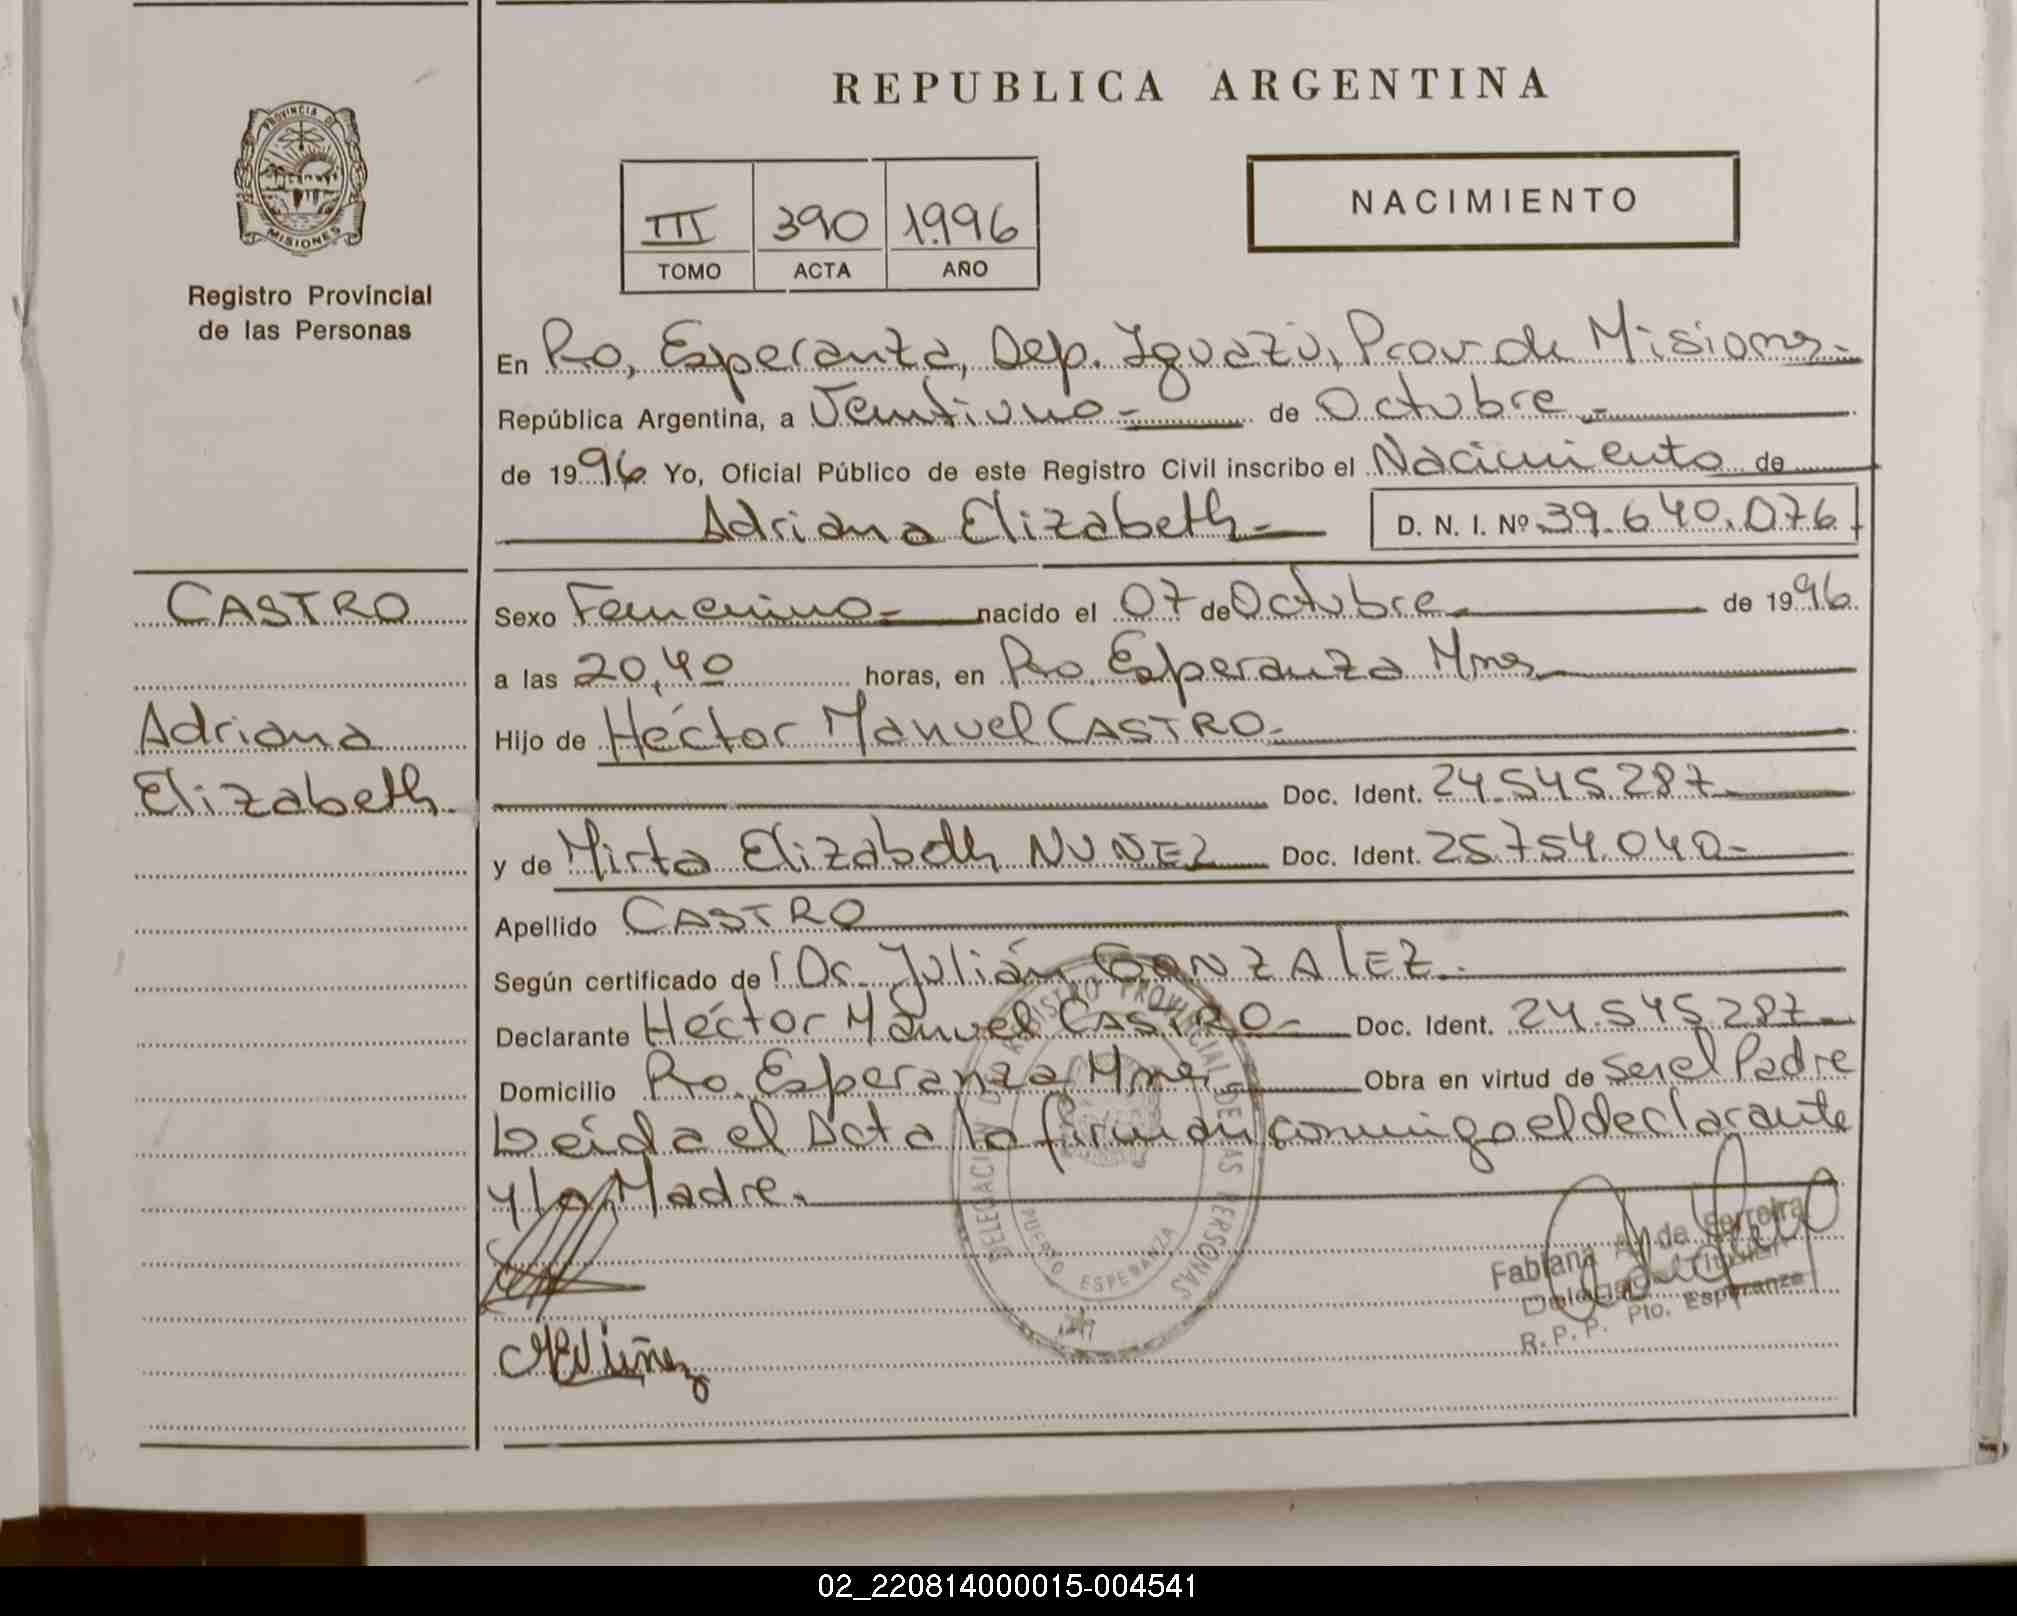 REPUBLICA ARGENTINA
PROVINCIA DE
MISIONES
Registro Provincial
de las Personas
NACIMIENTO
III 390 1.996
TOMO ACTA AÑO
En Pto, Esperanza, Dep. Iguazú, Prov de Misiones-
República Argentina, a Veintiuno- de Octubre-
de 1996 Yo, Oficial Público de este Registro Civil inscribo el Nacimiento de
Adriana Elizabeth- D. N. I. Nº 39.640.076
CASTRO
Adriana
Elizabeth
Sexo Femenino- nacido el 07 de Octubre de 1996
a las 20,40 horas, en Pto. Esperanza Mnes
Hijo de Héctor Manuel CASTRO-
Doc. Ident. 24.545.287
y de Mirta Elizabeth NUÑEZ Doc. Ident. 25.754.040-
Apellido CASTRO
Según certificado de : Dr. Julián GONZALEZ.
Declarante Héctor Manuel CASTRO- Doc. Ident. 24.545.287-
Domicilio Pto. Esperanza Mnes- Obra en virtud de ser el Padre
Leída el Acta la firman conmigo el declarante
y la Madre.
DELEGACION REGISTRO PROVINCIAL DE LAS PERSONAS
PUERTO ESPERANZA
Fabiana de Ferreira
Delegada Titular
R.P.P. Pto. Esperanza
MENúñez
02_220814000015-004541